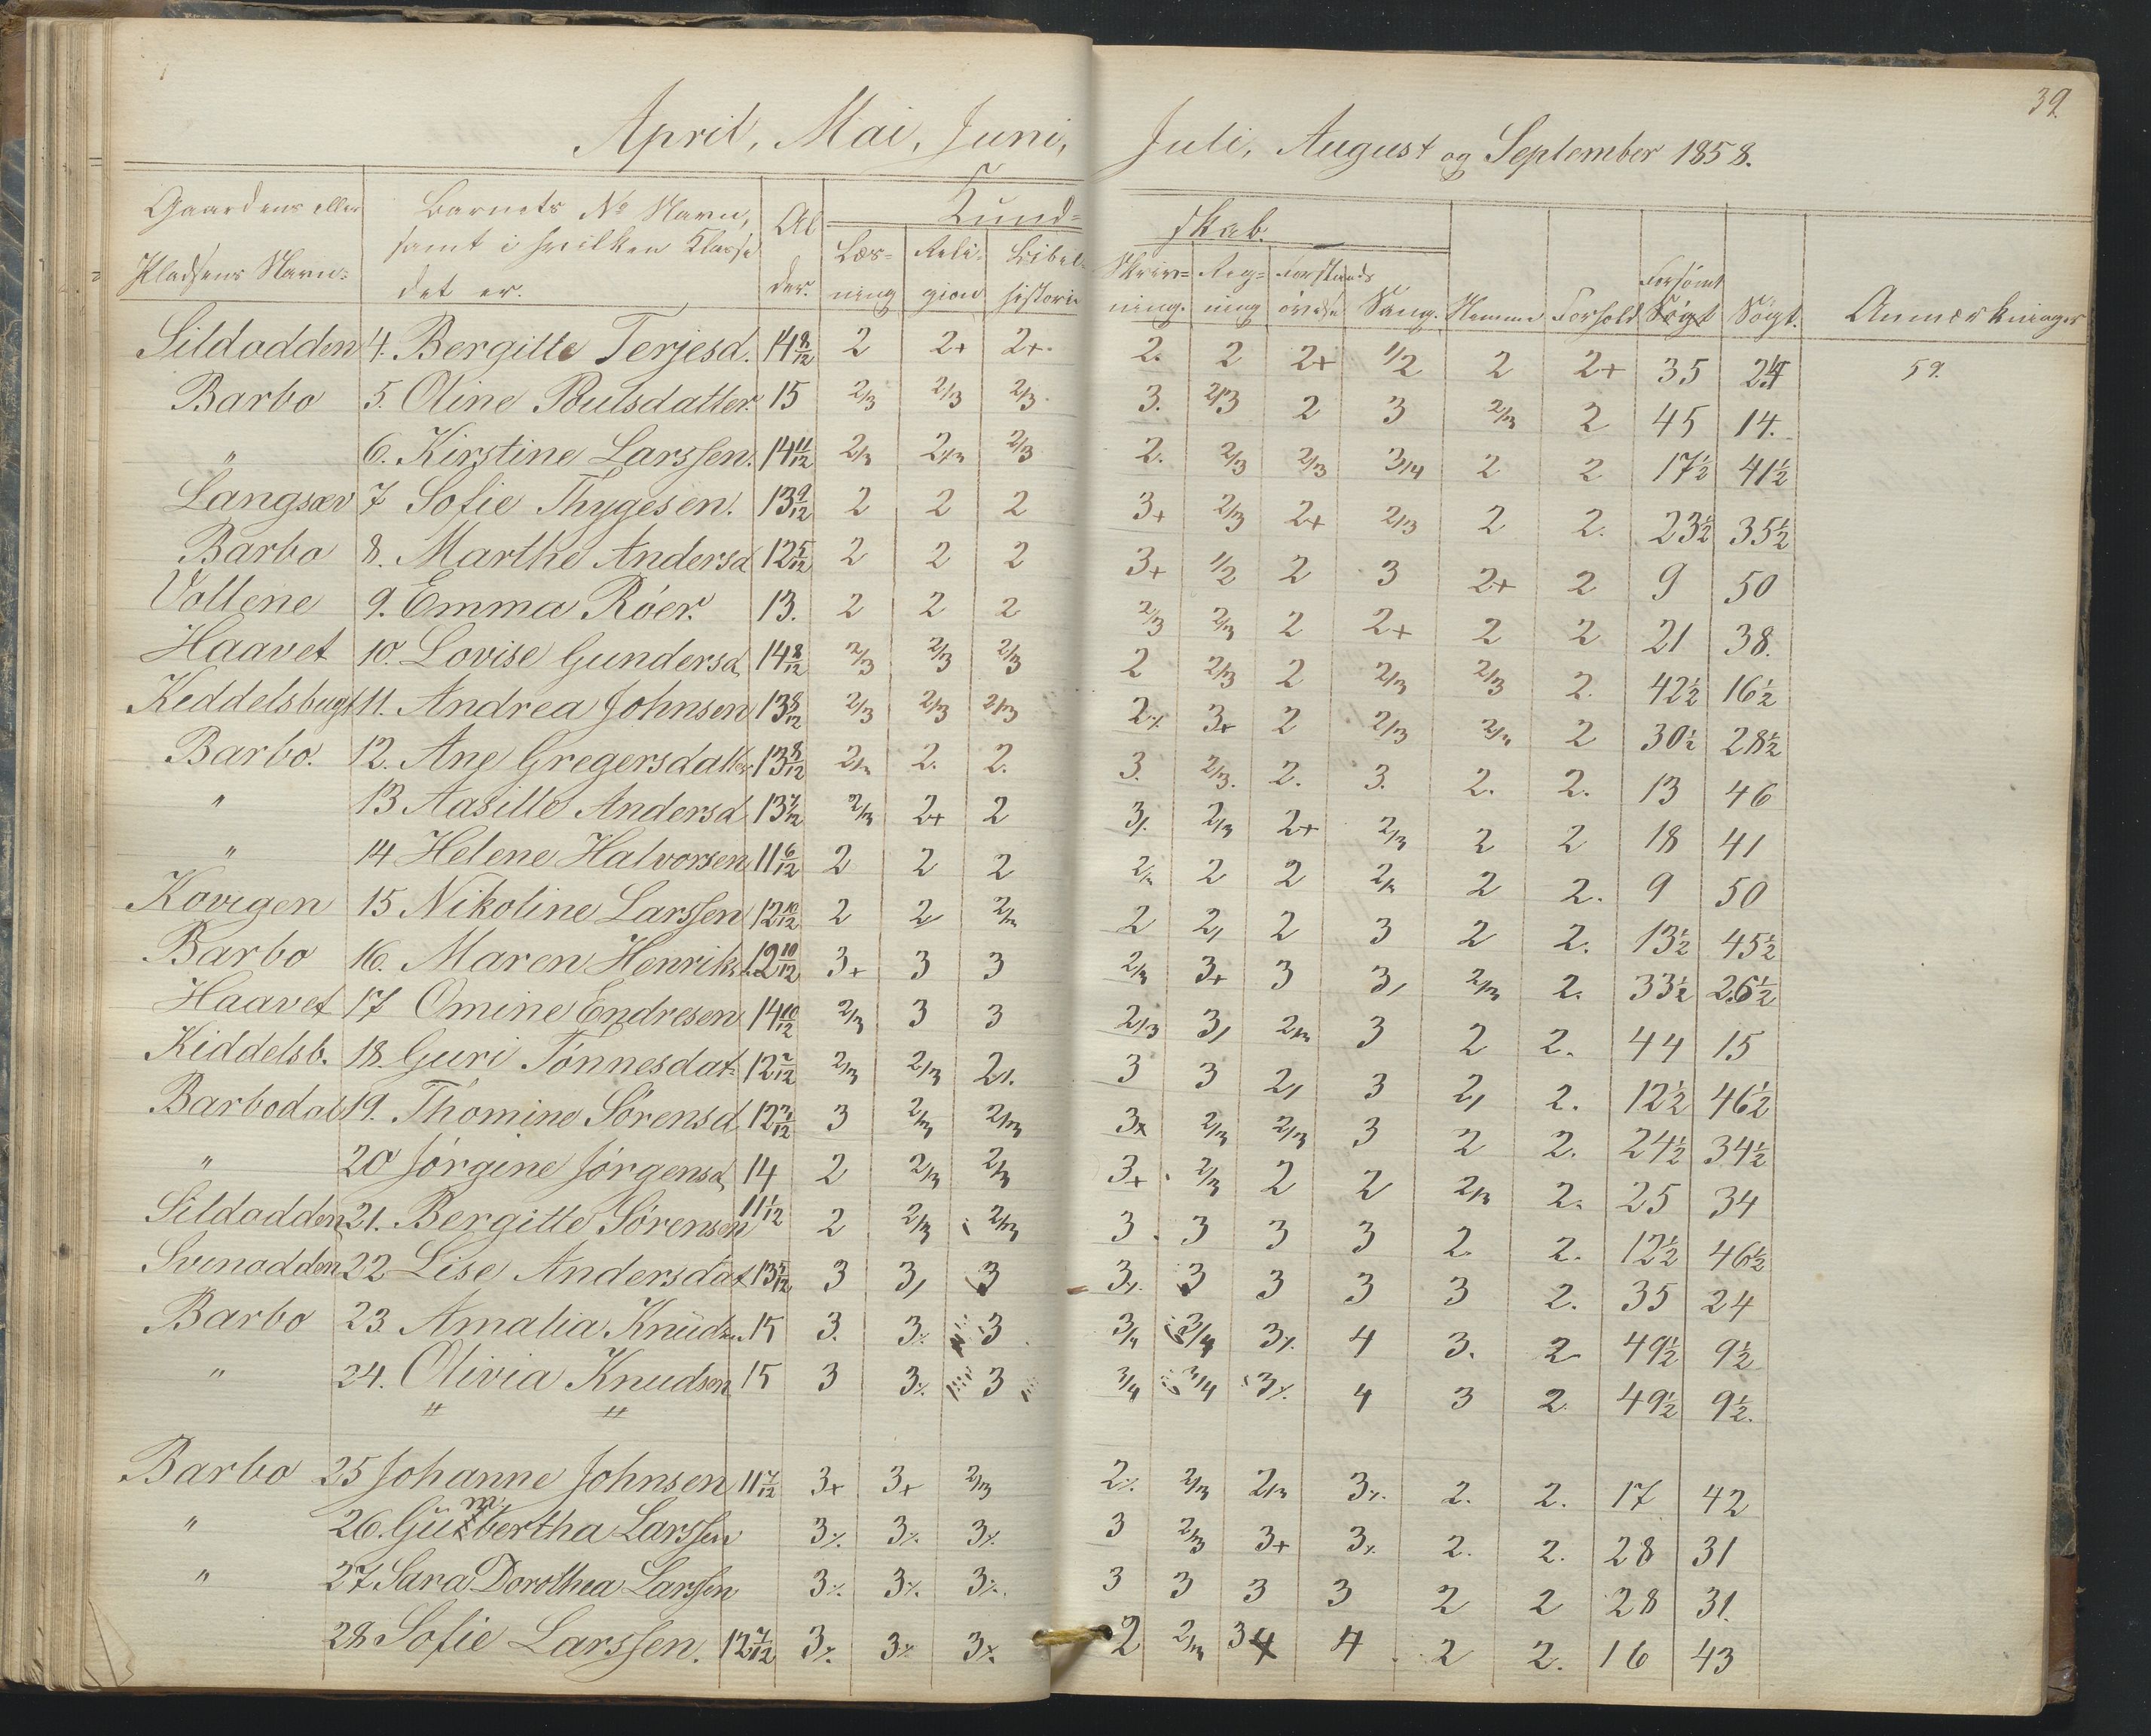 39.
April, Mai, Juni, Juli, August og September 1858.
Gaardens eller Pladsens Navn. Barnets No Navn, samt i hvilken Klasse det er. Alder. Kundskab. Læsning Religion Bibelhistorie Skrivning. Regning Forstandsøvelse Sang. Nemme Forhold Forsømt Søgt Søgt. Anmærkninger
Sildodden 4. Bergitte Terjesd. 14 8/12 2 2+ 2+. 2. 2 2+ 1/2 2 2+ 35 24 59.
Barbo 5. Oline Poulsdatter. 15 2/3 2/3 2/3. 3. 2/3 2 3 2/3 2 45 14.
" 6. Kirstine Larssen. 14 11/12 2/3 2/3 2/3 2. 2/3 2/3 3/4 2 2 17½ 41½
Langsæv 7 Sofie Thygesen. 13 9/12 2 2 2 3+ 2/3 2+ 2/3 2 2. 23½ 35½
Barbo 8. Marthe Andersd 12 5/12 2 2 2 3+ 1/2 2 3 2+ 2 9 50
Vollene 9. Emma Röer. 13. 2 2 2 2/3 2/3 2 2+ 2 2 21 38.
Haavet 10. Lovise Gundersd, 14 8/12 2/3 2/3 2/3 2 2/3 2 2/3 2/3 2. 42½ 16½
Keddelsbugt 11. Andrea Johnsen 13 8/12 2/3 2/3 2/3 2% 3+ 2 2/3 2/3 2 30½ 28½
Barbo. 12. Ane Gregersdatter 13 8/12 2/3 2. 2. 3. 2/3. 2. 3. 2. 2. 13 46
" 13 Aasille Andersd 13 7/12 2/3 2+ 2 3/. 2/3 2+ 2/3 2 2 18 41
" 14 Helene Halvorsen 11 6/12 2 2 2 2/3 2 2 2/3 2 2. 9 50
Kovigen 15 Nikoline Larssen 12 10/12 2 2 2/3 2 2, 2 3 2 2. 13½ 45½
Barbo 16. Maren Henriks.. 12 10/12 3+ 3 3 2/3 3+ 3 3, 2/3 2. 33½ 26½
Haavet 17 Omine Endresen 14 10/12 2/3 3 3 2/3 3, 2/3 3 2 2. 44 15
Kiddelsb. 18. Guri Tönnesdat= 12 2/12 2/3 2/3 2/. 3 3 2, 3 2, 2. 12½ 46½
Barbodal 19. Thomine Sörensd 12 3/12 3 2/3 2/3 3+ 2/3 2/3 3 2 2. 24½ 34½
" 20 Jörgine Jörgensd, 14 2 2/3 2/3 3+. 2/3 2 2 2/3 2. 25 34
Sildodden 21. Bergitte Sörensen 11 1/12 2 2/3 2/3 3. 3 3 3 2. 2. 12½ 46½
Svinodden 22 Lise Andersdat 13 5/12 3 3, 3 3/. 3 3 3 3 2. 35 24
Barbo 23 Amalia Knuds.. 15 3. 3% 3. 3/4 3/4 3% 4 3. 2 49½ 9½
" 24. Olivia Knudsen 15 3 3% 3 3/4 3/4 3% 4 3 2. 49½ 9½.
" "
Barbo 25 Johanne Johnsen 11 7/12 3+ 3+ 2/3 2% 2/3 2/3 3%. 2. 2. 17 42
" 26. Gumbertha Larssen 3% 3% 3% 3 2/3 3+ 3% 2. 2. 28 31
" 27 Sara Dorothea Larssen 3% 3% 3%. 3 3 3 3 2 2 28 31.
28 Sofie Larssen. 12 7/12 3% 3% 3% 2 2/3 3 4 4 2 2. 16 43